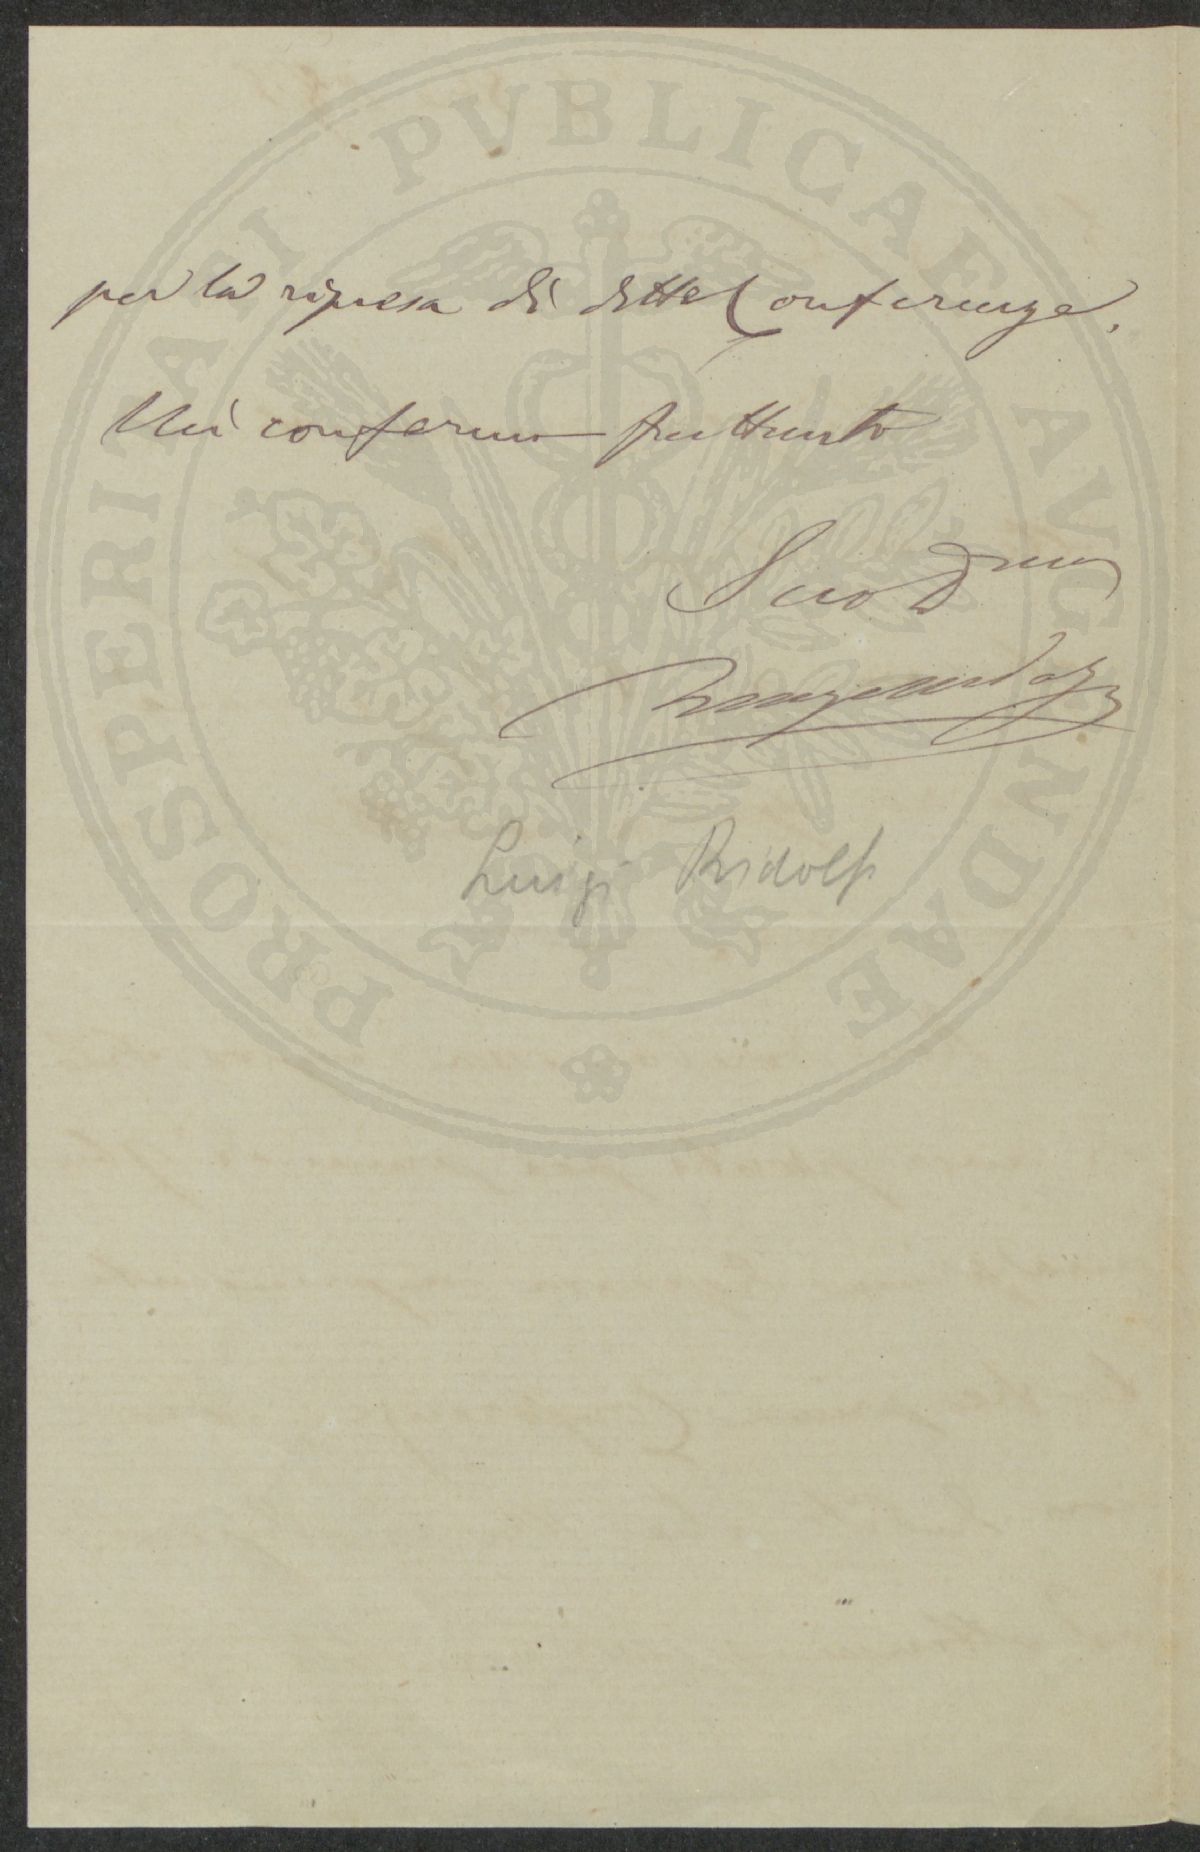 PROSPERITATI PVBLICAE AVGENDAE
per la ripresa di dette Conferenze.
Mi confermo frattanto
Suo Dmo
Luigi Ridolfi